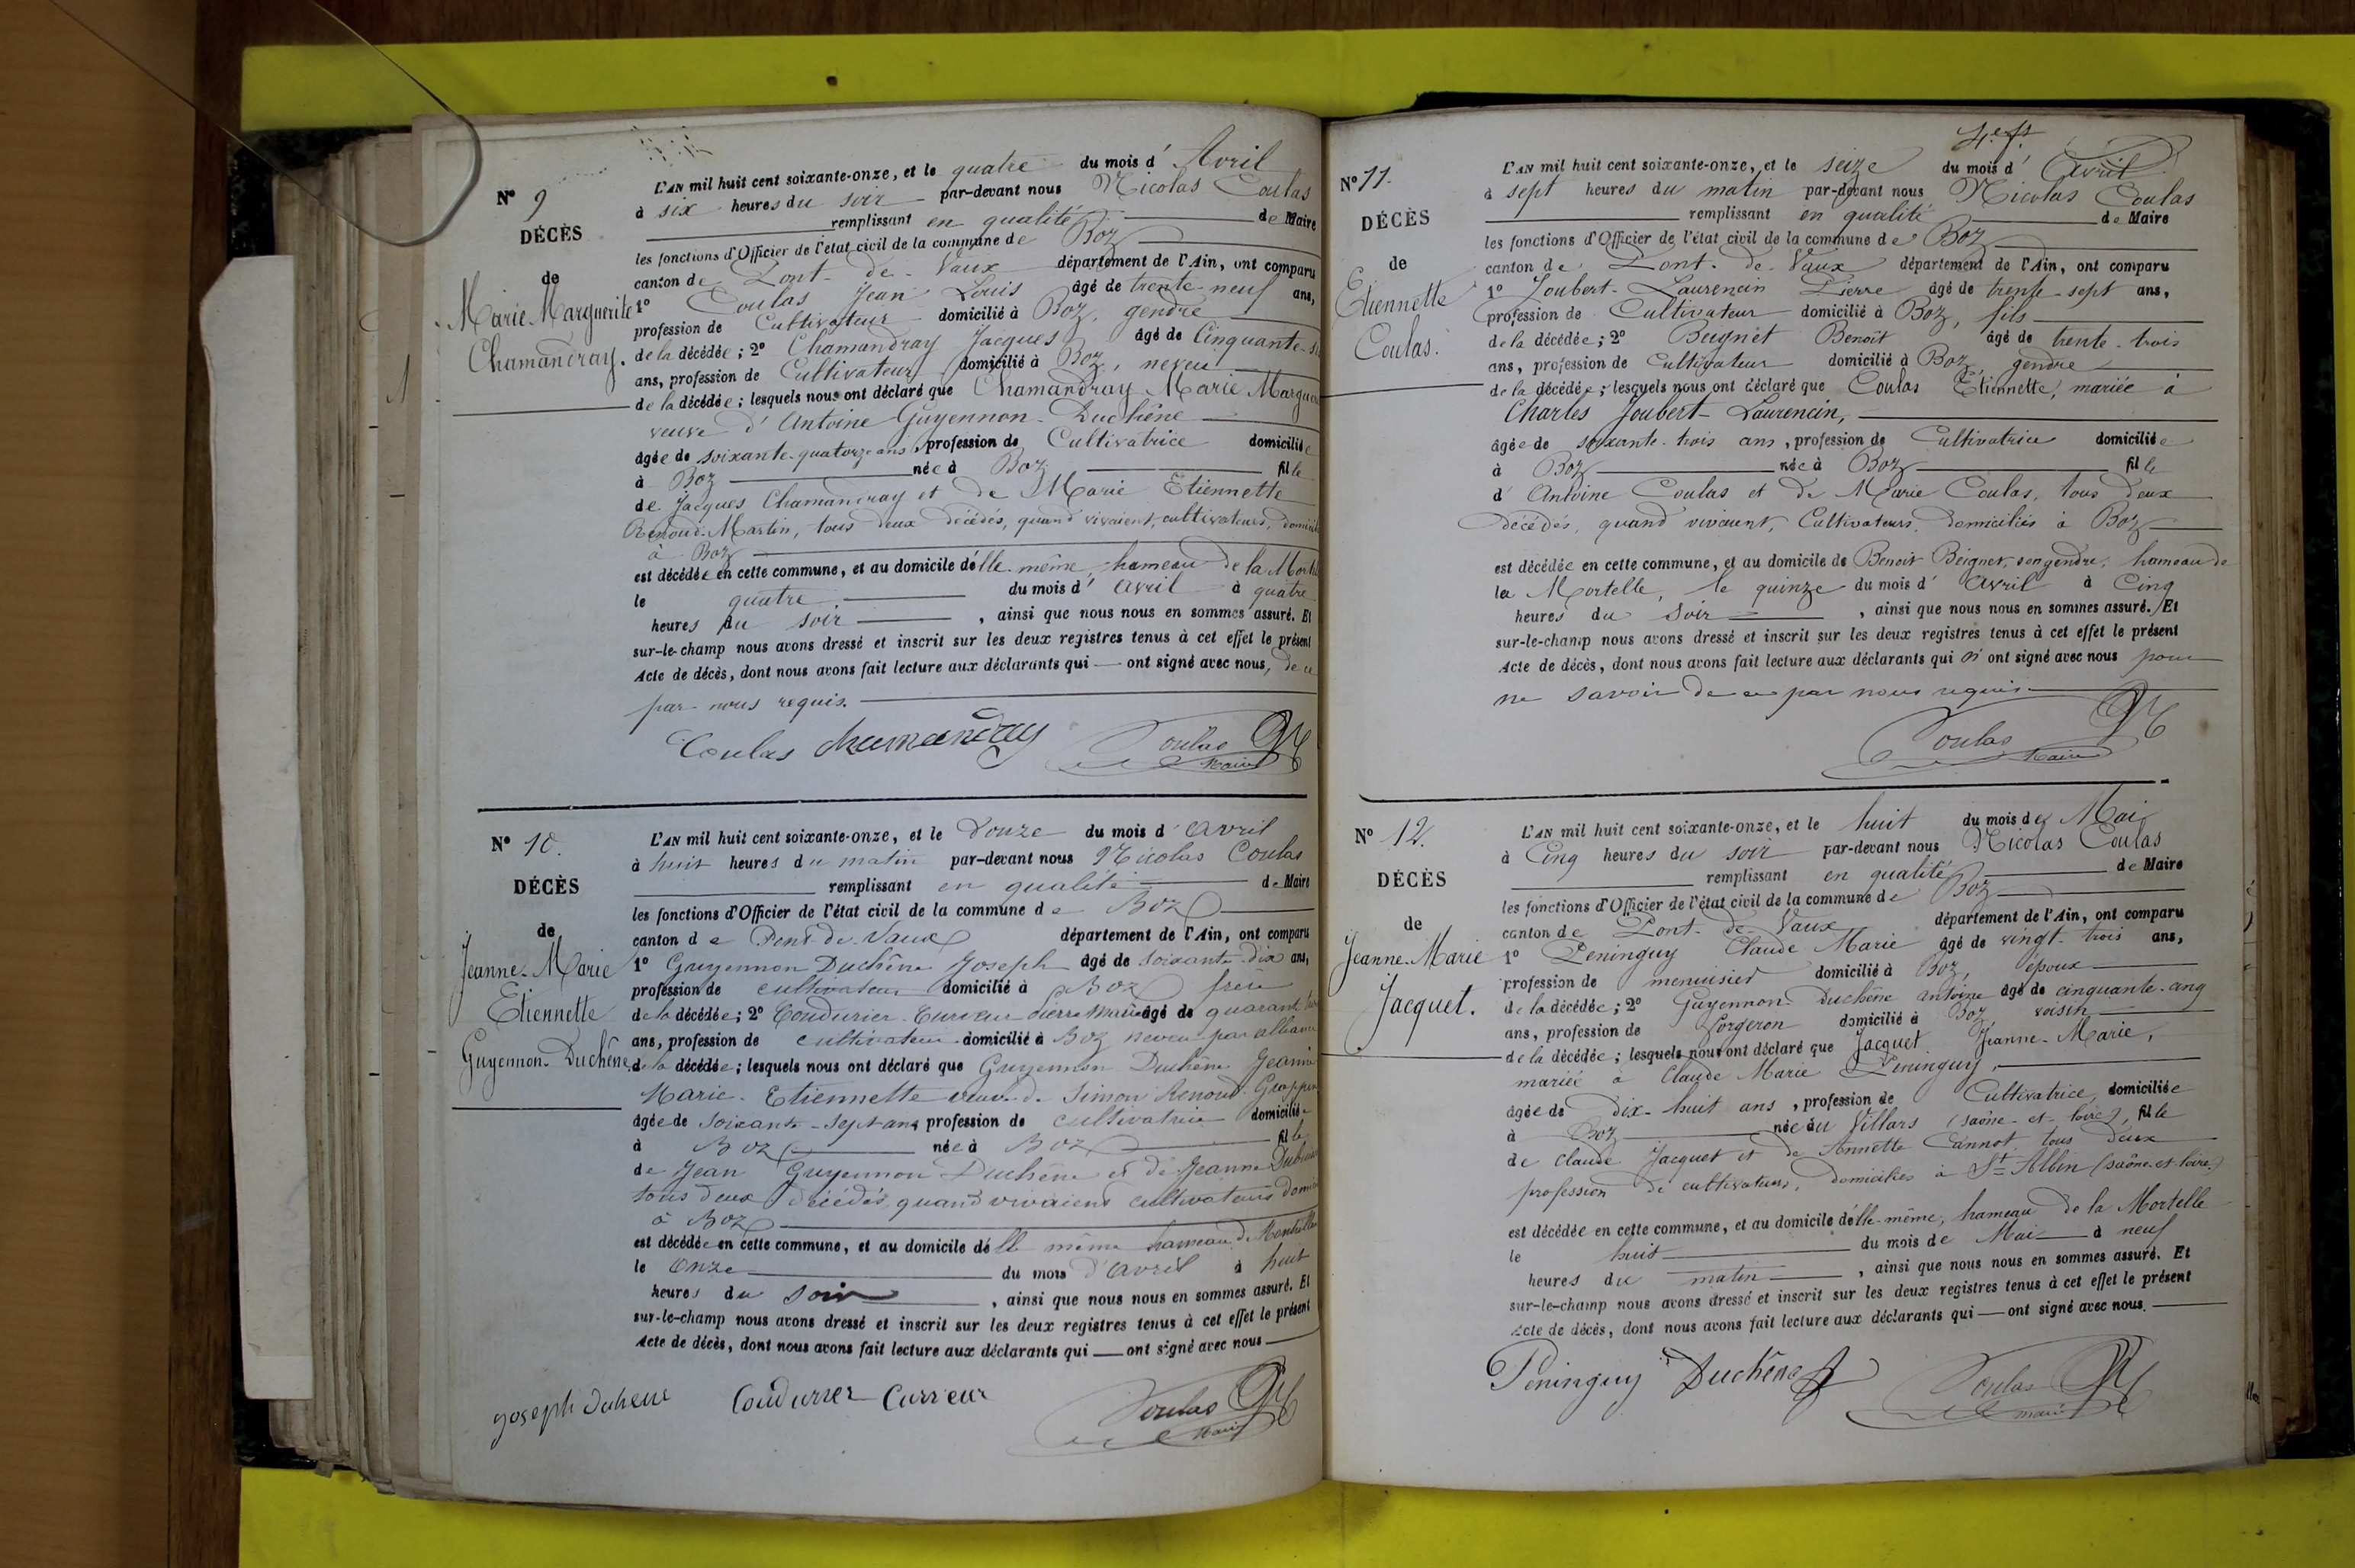 N° 9
DÉCÈS
de
Marie Marguerite
Chamandray.
L'AN mil huit cent soixante-onze, et le quatre du mois d' Avril
à six heures du soir par-devant nous Nicolas Coulas
remplissant en qualité de Maire
les fonctions d'Officier de l'état civil de la commune de Boz
canton de Pont-de-Vaux département de l'Ain, ont comparu
1° Coulas Jean Louis âgé de trente-neuf ans,
profession de Cultivateur domicilié à Boz, gendre
de la décédée; 2° Chamandray Jacques âgé de Cinquante-
ans, profession de Cultivateur domicilié à Boz, neveu
de la décédée; lesquels nous ont déclaré que Chamandray Marie Margue
veuve d'Antoine Guyennon-Duchêne
âgée de soixante-quatorze ans, profession de Cultivatrice domiciliée
à Boz née à Boz fille
de Jacques Chamandray et de Marie Etiennette
Renoud-Martin, tous deux décédés, quand vivaient, cultivateurs, domicil
à Boz
est décédée en cette commune, et au domicile d'elle-même, hameau de la Morte
le quatre du mois d' avril à quatre
heures du soir, ainsi que nous nous en sommes assuré. Et
sur-le-champ nous avons dressé et inscrit sur les deux registres tenus à cet effet le présent
Acte de décès, dont nous avons fait lecture aux déclarants qui — ont signé avec nous, de ce
par nous requis.
Coulas chamandray Coulas
Maire
N° 10.
DÉCÈS
de
Jeanne-Marie
Etiennette
Guyennon-Duchêne
L'AN mil huit cent soixante-onze, et le Douze du mois d' avril
à huit heures du matin par-devant nous Nicolas Coulas
remplissant en qualité de Maire
les fonctions d'Officier de l'état civil de la commune de Boz
canton de Pont-de-Vaux département de l'Ain, ont comparu
1° Guyennon Duchêne Joseph âgé de soixante-dix ans,
profession de cultivateur domicilié à Boz frère
de la décédée; 2° Coudurier-Curveur Pierre Marie âgé de quarante
ans, profession de cultivateur domicilié à Boz neveu par alliance
de la décédée; lesquels nous ont déclaré que Guyennon Duchêne Jeanne
Marie-Etiennette veuve de Simon Renoud-Grappin
âgée de soixante-sept ans profession de cultivatrice domiciliée
à Boz née à Boz fille
de Jean Guyennon Duchêne et de Jeanne
tous deux décédés quand vivaient cultivateurs domici
à Boz
est décédée en cette commune, et au domicile d'elle même hameau de
le onze du mois d'avril à huit
heures du soir, ainsi que nous nous en sommes assuré. Et
sur-le-champ nous avons dressé et inscrit sur les deux registres tenus à cet effet le présent
Acte de décès, dont nous avons fait lecture aux déclarants qui — ont signé avec nous
joseph duhene Coudurier Curveur Coulas
Maire
N° 11.
DÉCÈS
de
Etiennette
Coulas.
L'AN mil huit cent soixante-onze, et le seize du mois d' avril
à sept heures du matin par-devant nous Nicolas Coulas
remplissant en qualité de Maire
les fonctions d'Officier de l'état civil de la commune de Boz
canton de Pont-de-Vaux département de l'Ain, ont comparu
1° Joubert-Laurencin Pierre âgé de trente-sept ans,
profession de Cultivateur domicilié à Boz, fils
de la décédée; 2° Beignet Benoît âgé de trente-trois
ans, profession de Cultivateur domicilié à Boz, gendre
de la décédée; lesquels nous ont déclaré que Coulas Etiennette, mariée à
Charles Joubert-Laurencin,
âgée de soixante-trois ans, profession de Cultivatrice domiciliée
à Boz née à Boz fille
d'Antoine Coulas et de Marie Coulas, tous deux
décédés, quand vivaient, Cultivateurs, domiciliés à Boz
est décédée en cette commune, et au domicile de Benoît Beignet, son gendre, hameau de
la Mortelle, le quinze du mois d' avril à Cinq
heures du soir, ainsi que nous nous en sommes assuré. Et
sur-le-champ nous avons dressé et inscrit sur les deux registres tenus à cet effet le présent
Acte de décès, dont nous avons fait lecture aux déclarants qui n'ont signé avec nous pour
ne savoir de ce par nous requis
Coulas
Maire
N° 12.
DÉCÈS
de
Jeanne-Marie
Jacquet.
L'AN mil huit cent soixante-onze, et le huit du mois de Mai
à Cinq heures du soir par-devant nous Nicolas Coulas
remplissant en qualité de Maire
les fonctions d'Officier de l'état civil de la commune de Boz
canton de Pont-de-Vaux département de l'Ain, ont comparu
1° Peninguy Claude Marie âgé de vingt-trois ans,
profession de menuisier domicilié à Boz, époux
de la décédée; 2° Guyennon-Duchêne antoine âgé de cinquante-cinq
ans, profession de forgeron domicilié à Boz voisin
de la décédée; lesquels nous ont déclaré que Jacquet Jeanne-Marie,
mariée à Claude Marie Peninguy,
âgée de dix-huit ans, profession de Cultivatrice, domiciliée
à Boz née au Villars (saône-et-loire), fille
de claude Jacquet et de Annette Cannot, tous deux
profession de cultivateurs, domiciliés à St Albin (saône-et-loire)
est décédée en cette commune, et au domicile d'elle-même, hameau de la Mortelle
le huit du mois de Mai à neuf
heures du matin, ainsi que nous nous en sommes assuré. Et
sur-le-champ nous avons dressé et inscrit sur les deux registres tenus à cet effet le présent
Acte de décès, dont nous avons fait lecture aux déclarants qui — ont signé avec nous.
Péninguy Duchêne Coulas
maire